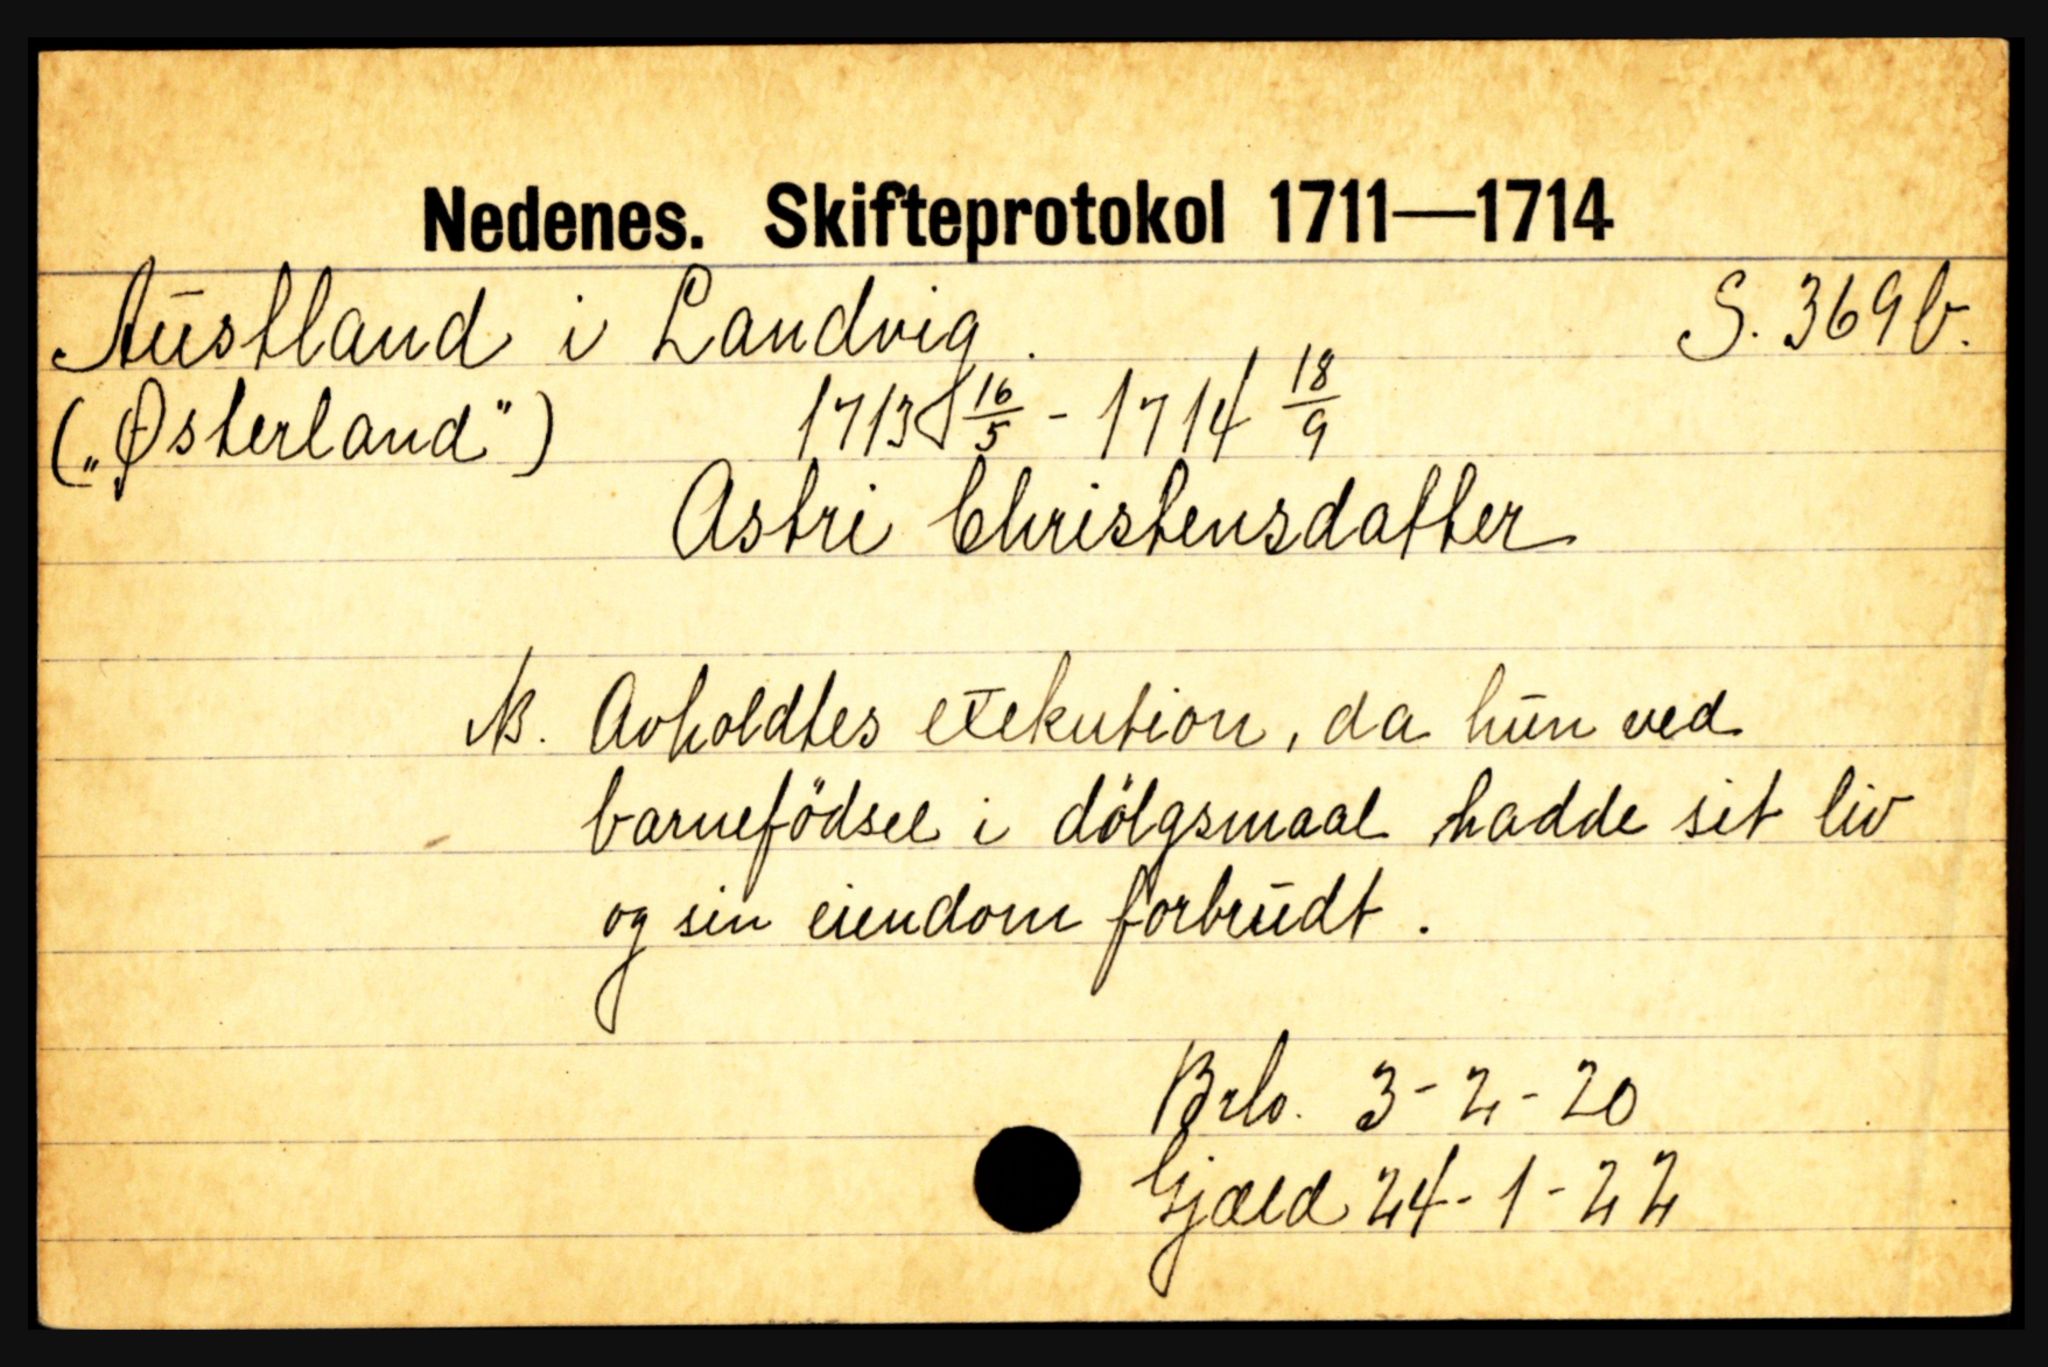 Nedenes. Skifteprotokol 1711—1714
Austland i Landvig. S. 369 b.
(„Østerland") 1713 16/5 - 1714 18/9
Astri Christensdatter
NB. Avholdtes exekution, da hun ved
barnefödsel i dölgsmaal hadde sit liv
og sin eiendom forbrudt.
Brlo. 3 - 2 - 20
Gjæld 24 - 1 - 22